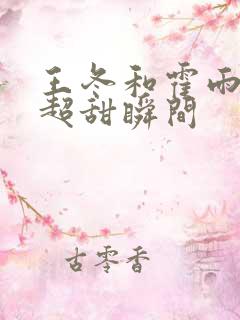 王冬和霍雨
超甜瞬間
古零香